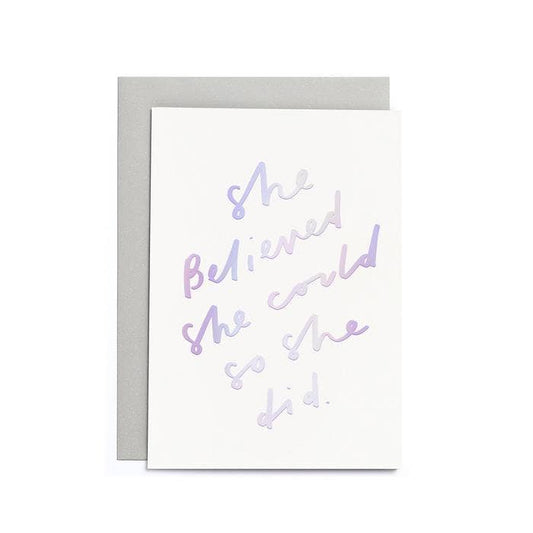 she
Believed
she could
so she
did.